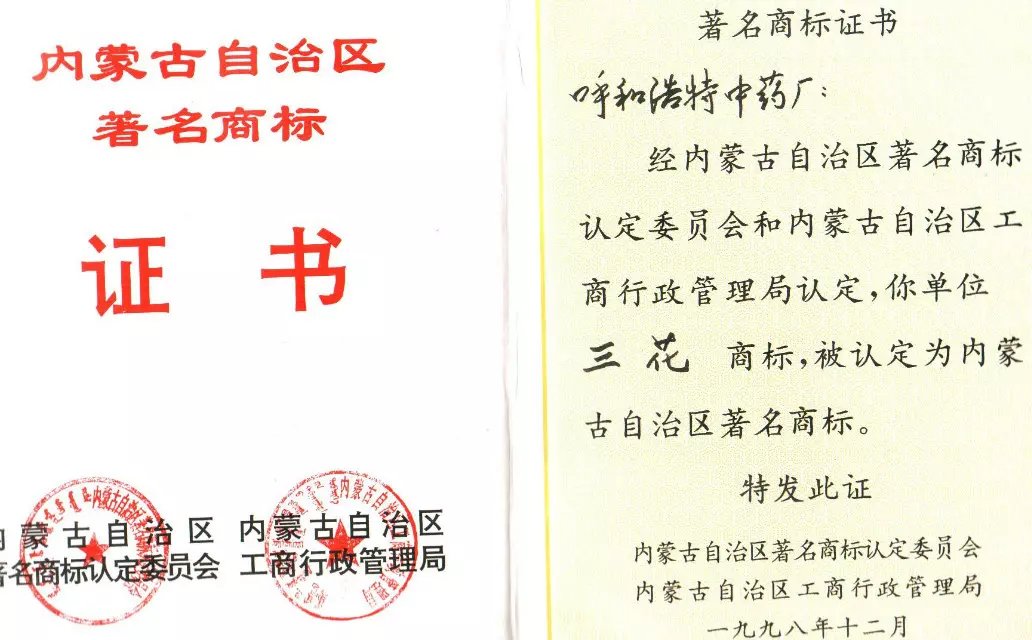 内蒙古自治区
著名商标
证 书
内蒙古自治区
著名商标认定委员会
内蒙古自治区
工商行政管理局
著名商标证书
呼和浩特中药厂：
经内蒙古自治区著名商标
认定委员会和内蒙古自治区工
商行政管理局认定，你单位
三花 商标，被认定为内蒙
古自治区著名商标。
特发此证
内蒙古自治区著名商标认定委员会
内蒙古自治区工商行政管理局
一九九八年十二月